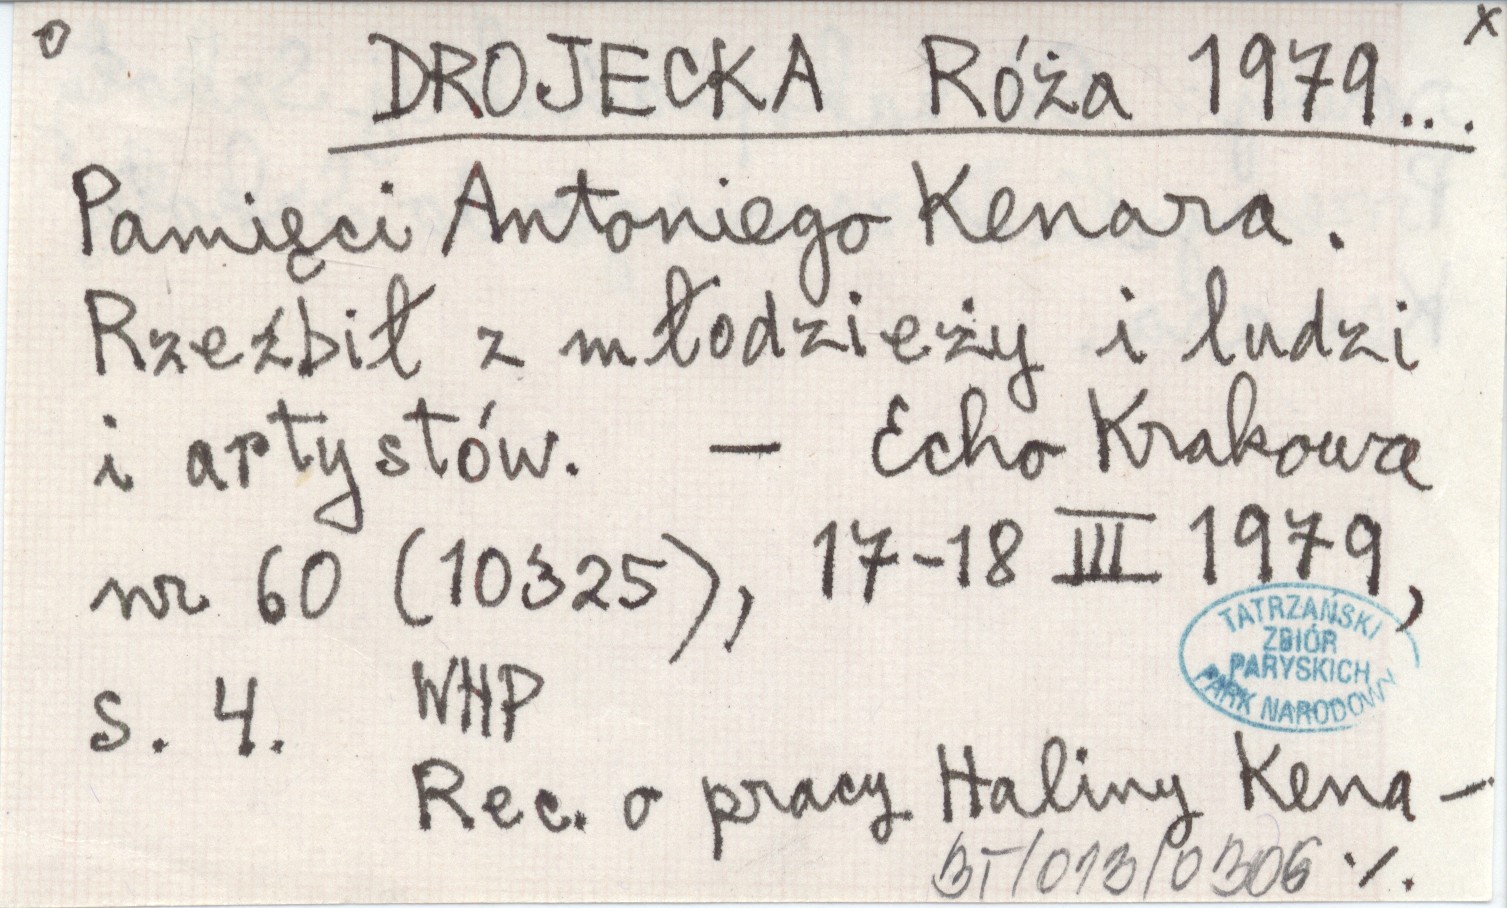 o x
DROJECKA Róża 1979...
Pamięci Antoniego Kenara.
Rzeźbił z młodzieży i ludzi
i artystów. — Echo Krakowa
nr 60 (10325), 17-18 III 1979,
TATRZAŃSKI
ZBIÓR
PARYSKICH
PARK NARODOWY
s. 4. WHP
Rec. o pracy Haliny Kena-
BT/013/0306 ·/.